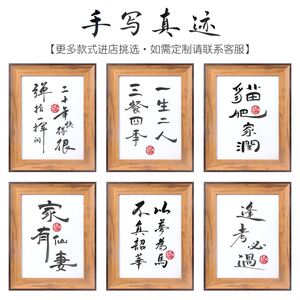 手写真迹
【更多款式进店挑选·如需定制请联系客服】
二十年快得很
彈指一揮间
一生二人
三餐四季
貓肥家潤
家有仙妻
以夢為馬
不負韶華
逢考必過